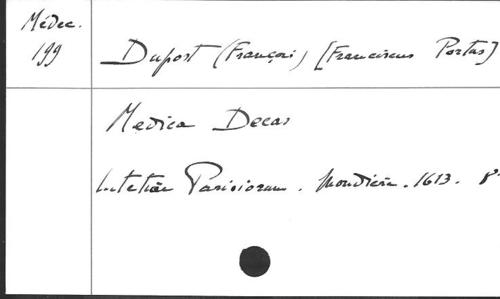 Médec.
199
Duport (François) [Franciscus Portus]
Medica Decas
Lutetiae Parisiorum. Mondière. 1613. 8°